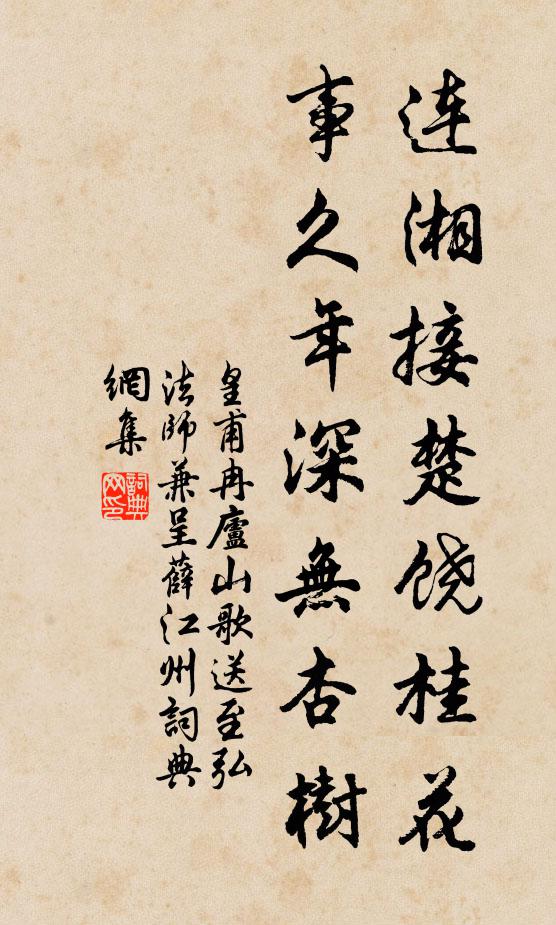 连湘接楚饶桂花
事久年深無杏樹
皇甫冉廬山歌送至弘
法師兼呈薛江州詞典
網集
詞典
网印